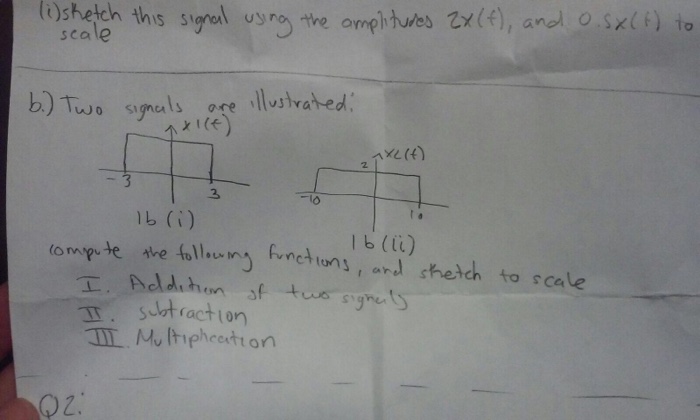 (i) sketch this signal using the amplitudes 2x(t), and 0.5x(t) to
scale
b.) Two signals are illustrated:
x1(t)
-3
3
1b (i)
x2(t)
2
-10
10
1b (ii)
compute the following functions, and sketch to scale
I. Addition of two signals
II. subtraction
III Multiplication
Q2: